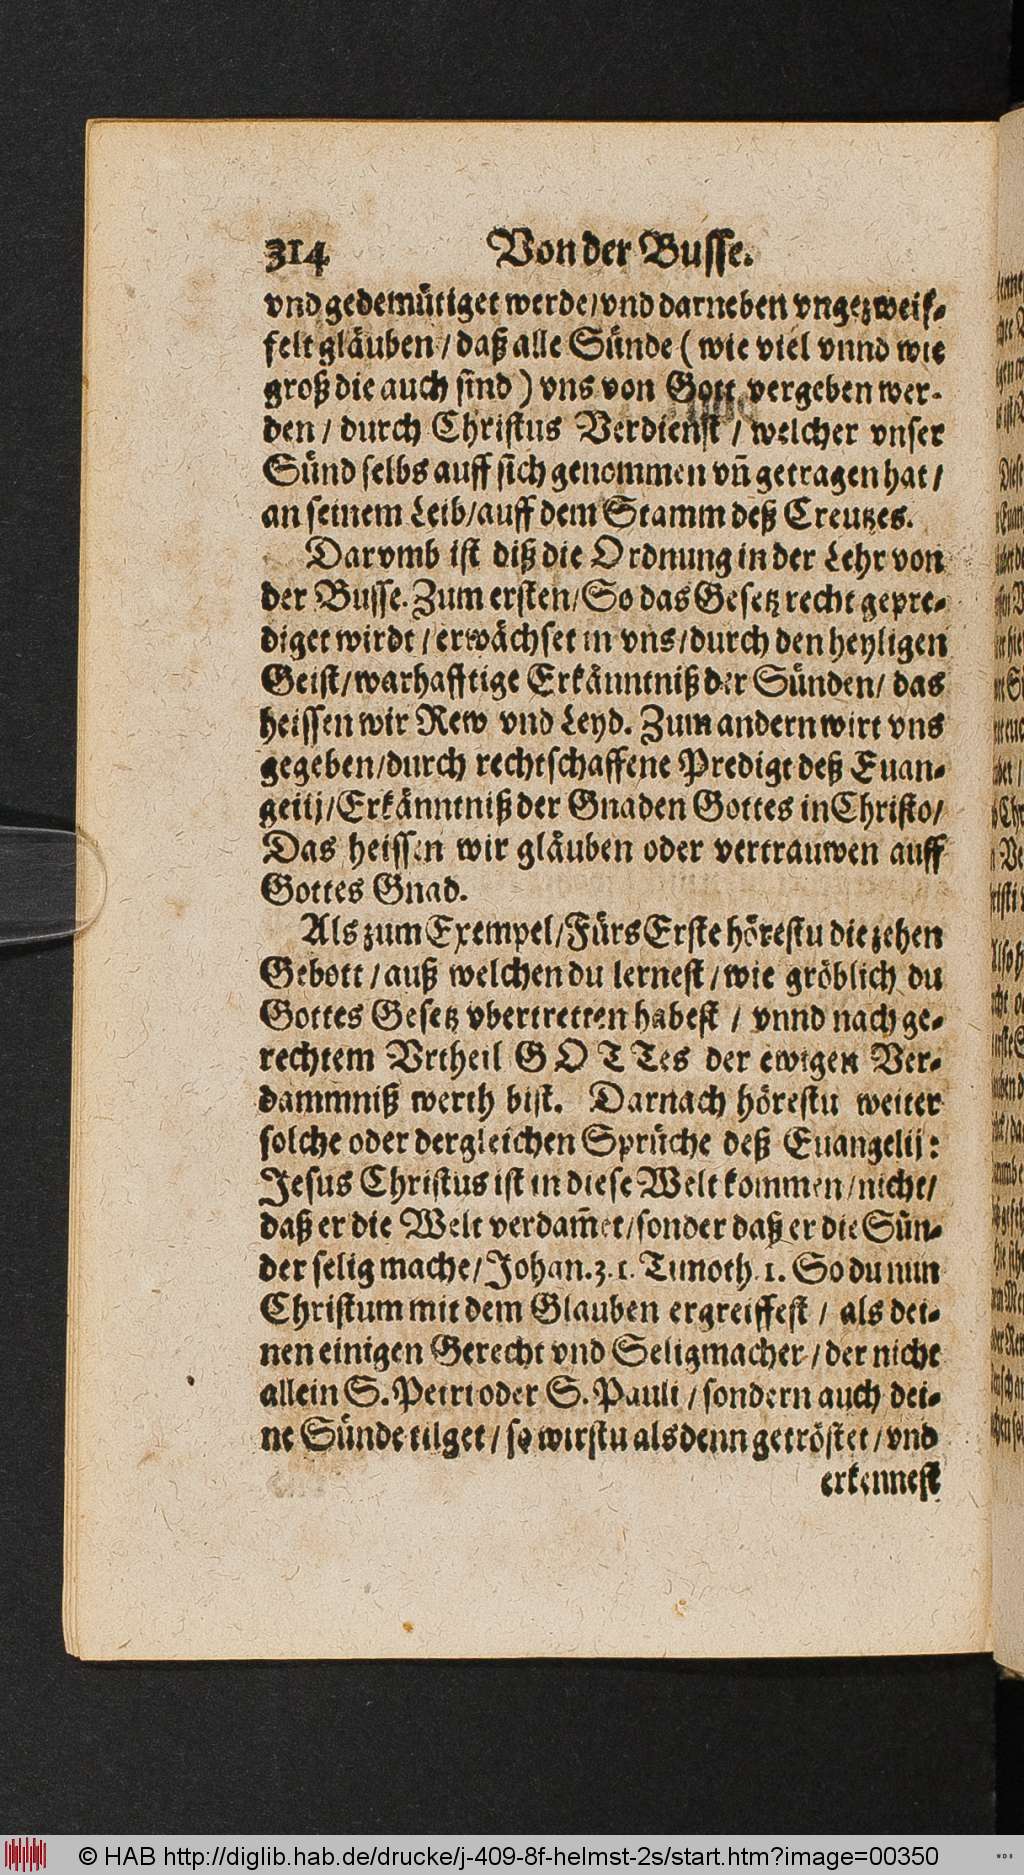 314 Von der Busse.
vnd gedemütiget werde/vnd darneben vngezweif-
felt gläuben/daß alle Sünde (wie viel vnnd wie
groß die auch sind) vns von Gott vergeben wer-
den/durch Christus Verdienst/welcher vnser
Sünd selbs auff sich genommen vñ getragen hat/
an seinem Leib/auff dem Stamm deß Creutzes.
Darvmb ist diß die Ordnung in der Lehr von
der Busse. Zum ersten/So das Gesetz recht gepre-
diget wirdt/erwächset in vns/durch den heyligen
Geist/warhafftige Erkänntniß der Sünden/das
heissen wir Rew vnd Leyd. Zum andern wirt vns
gegeben/durch rechtschaffene Predigt deß Euan-
gelij/Erkänntniß der Gnaden Gottes in Christo/
Das heissen wir gläuben oder vertrauwen auff
Gottes Gnad.
Als zum Exempel/Fürs Erste hörestu die zehen
Gebott/auß welchen du lernest/wie gröblich du
Gottes Gesetz vbertretten habest/vnnd nach ge-
rechtem Vrtheil GOTTes der ewigen Ver-
dammniß werth bist. Darnach hörestu weiter
solche oder dergleichen Sprüche deß Euangelij:
Jesus Christus ist in diese Welt kommen/nicht/
daß er die Welt verdam̃et/sonder daß er die Sün-
der selig mache/Johan.3.1.Timoth.1. So du nun
Christum mit dem Glauben ergreiffest/als dei-
nen einigen Gerecht vnd Seligmacher/der nicht
allein S. Petri oder S. Pauli/sondern auch dei-
ne Sünde tilget/so wirstu alsdenn getröstet/vnd
erkennest
© HAB http://diglib.hab.de/drucke/j-409-8f-helmst-2s/start.htm?image=00350